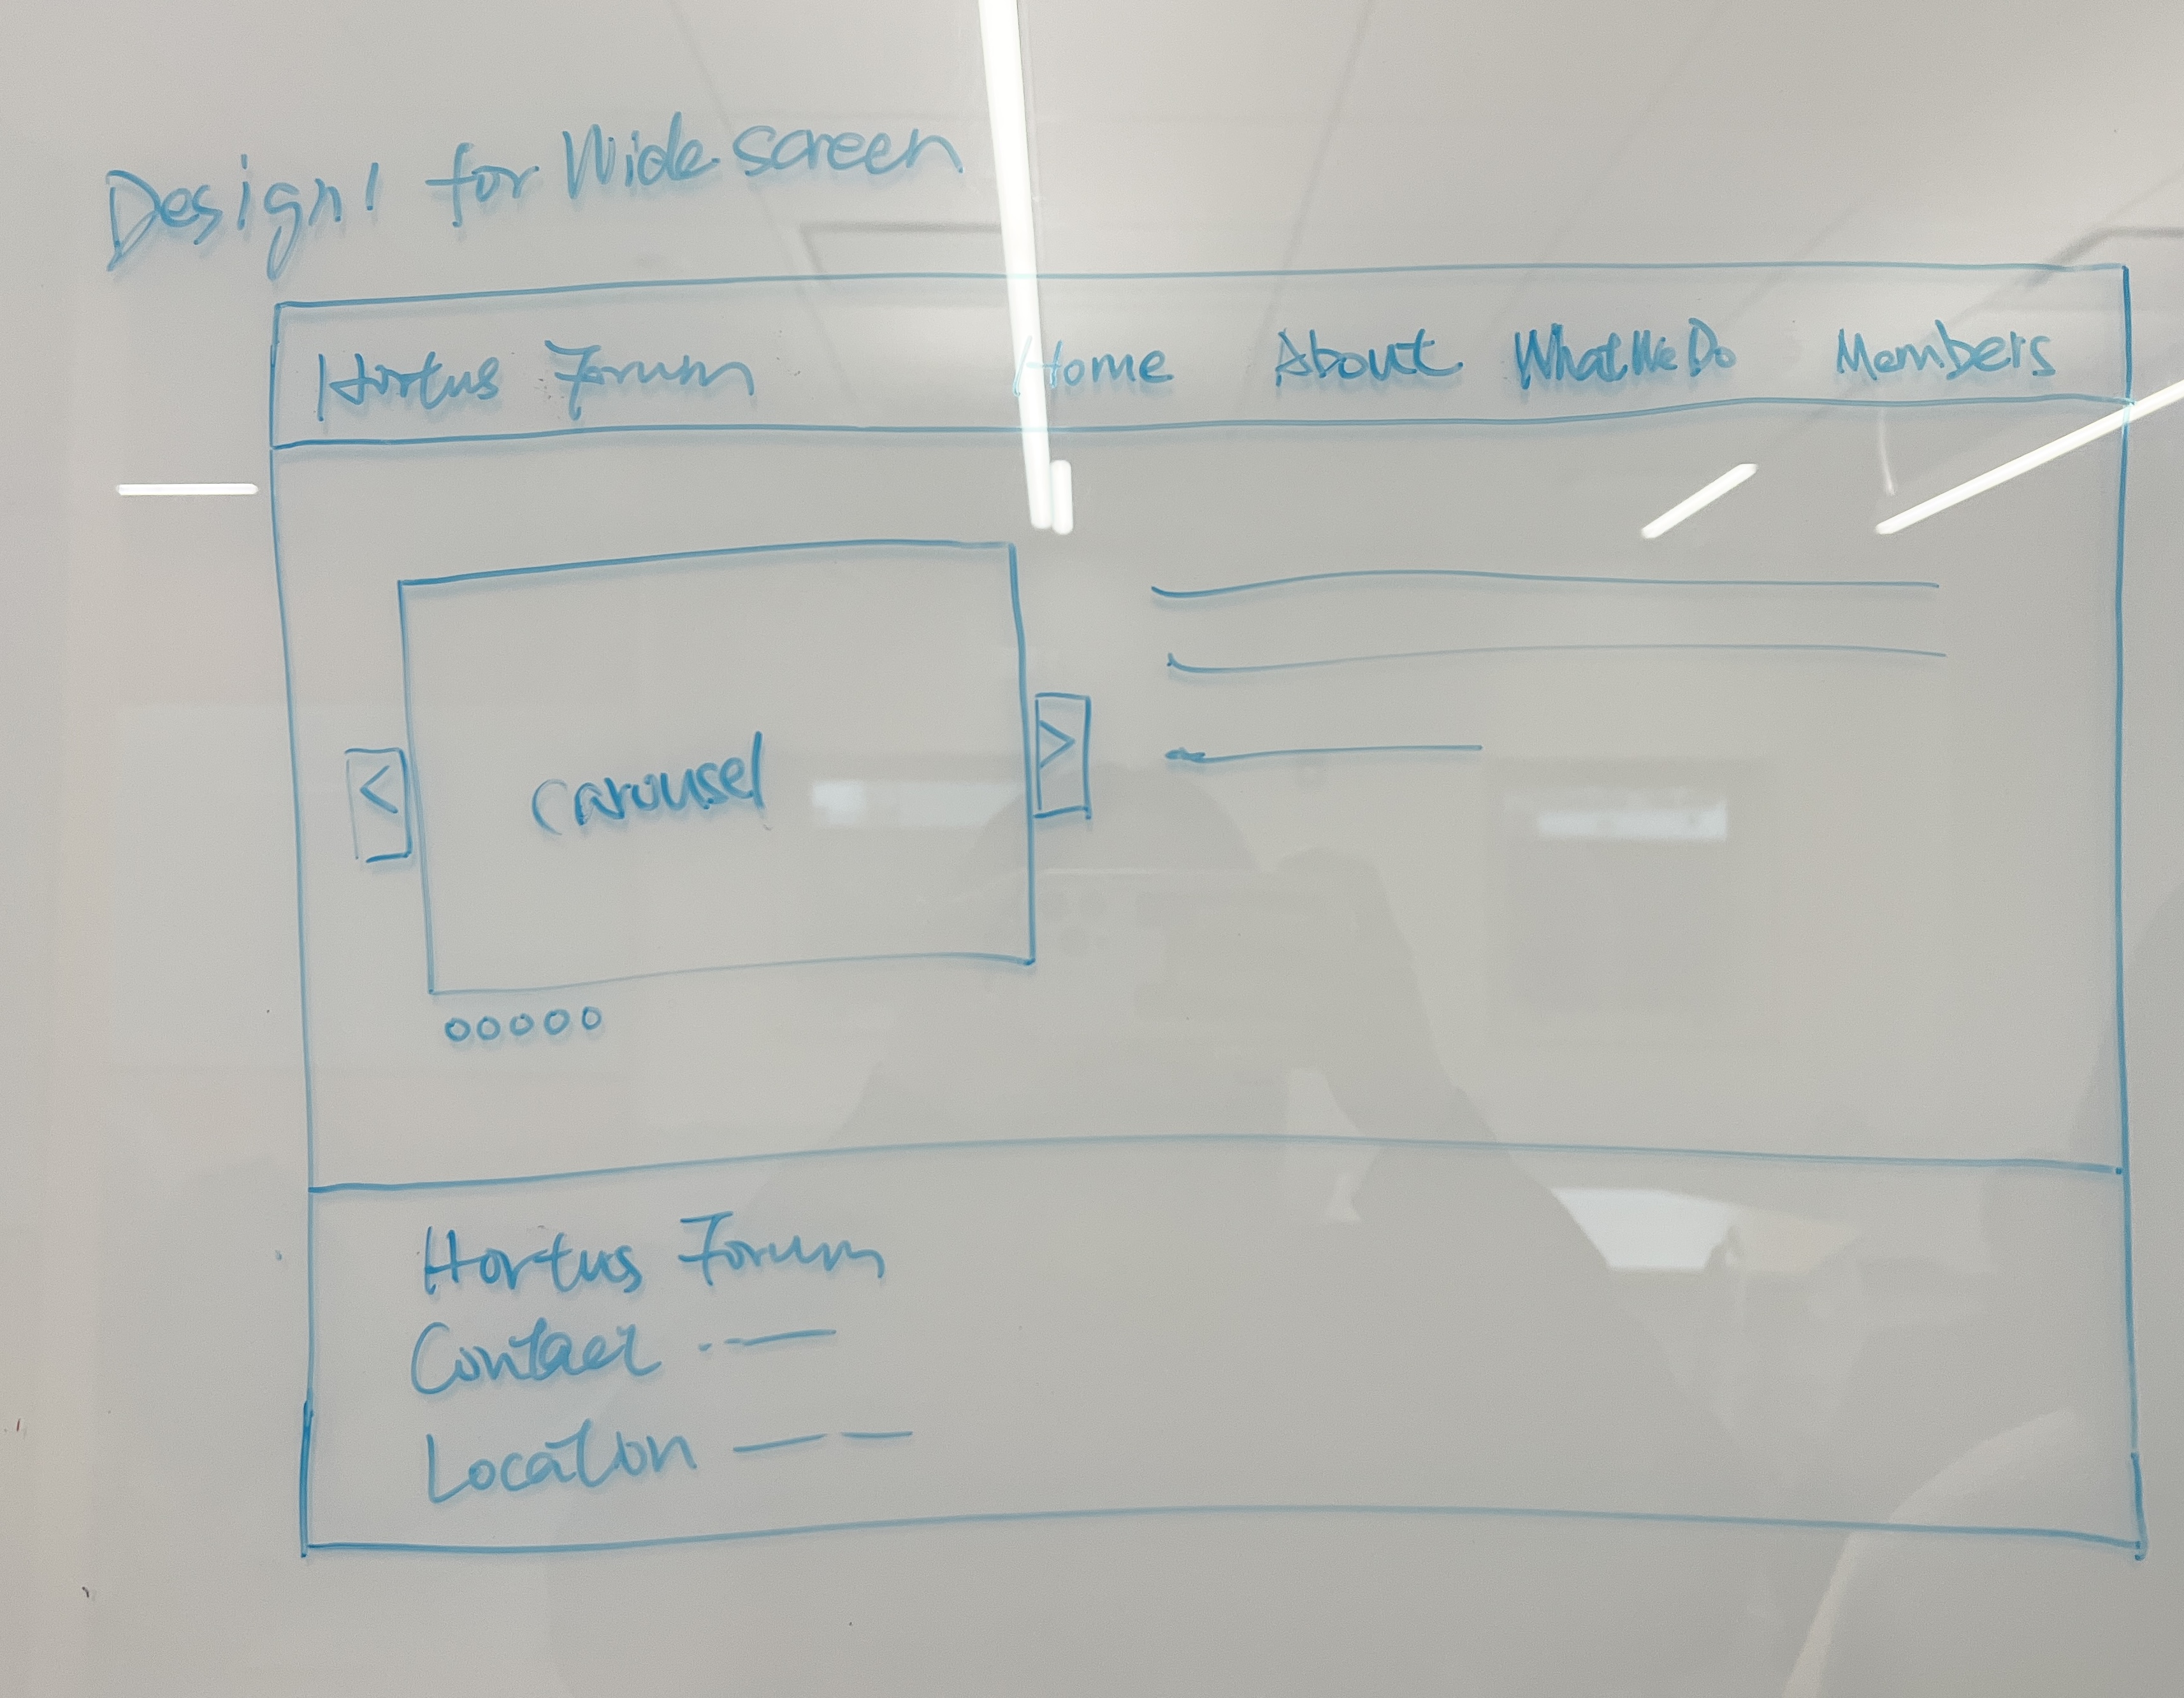 Design 1 for Wide screen
Hortus Forum Home About What We Do Members
<
carousel
>
Hortus Forum
Contact
Location